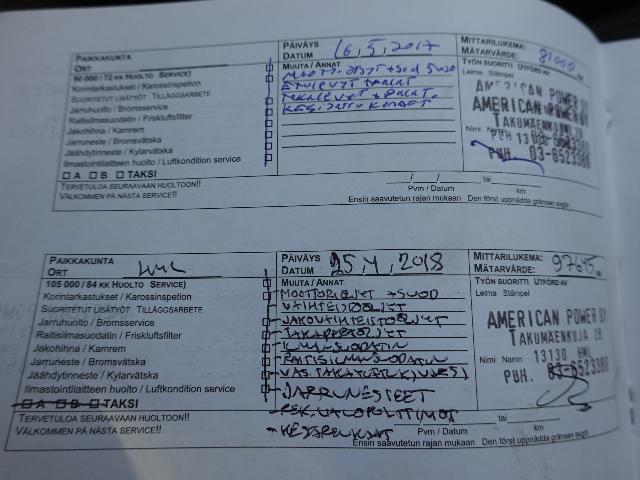 PAIKKAKUNTA
ORT
PÄIVÄYS
DATUM 16,5,2017
MITTARILUKEMA:
MÄTARVÄRDE: 81000 km
90 000 / 72 KK HUOLTO SERVICE)
Korintarkastukset / Karossinspetion
SUORITETUT LISÄTYÖT TILLÄGGSARBETE
Jarruhuolto / Bromsservice
Raitisilmasuodatin / Friskluftsfilter
Jakohihna / Kamrem
Jarruneste / Bromsvätska
Jäähdytinneste / Kylarvätska
Ilmastointilaitteen huolto / Luftkondition service
A B TAKSI
TERVETULOA SEURAAVAAN HUOLTOON!!
VÄLKOMMEN PÅ NÄSTA SERVICE!!
MUUTA / ANNAT
MOOTTORIÖLJYT + SUOD
ETULEVYT
TAKALEVYT + PALAT
KÄSIJARRUKENGÄT
/ /
Pvm / Datum
tai
km
Ensin saavutetun rajan mukaan Den först uppnådda gränsen avgör
TYÖN SUORITTI UTFÖRD AV
Leima Stämpel
AMERICAN POWER OY
AMERICAN POWER OY
TAKUMAENKUJA 2B
Nimi Namn 13130 HML
PUH. 03-6523380
PAIKKAKUNTA
ORT HML
PÄIVÄYS
DATUM 25,4,2018
MITTARILUKEMA:
MÄTARVÄRDE: 97645 km
105 000 / 84 KK HUOLTO SERVICE)
Korintarkastukset / Karossinspetion
SUORITETUT LISÄTYÖT TILLÄGGSARBETE
Jarruhuolto / Bromsservice
Raitisilmasuodatin / Friskluftsfilter
Jakohihna / Kamrem
Jarruneste / Bromsvätska
Jäähdytinneste / Kylarvätska
Ilmastointilaitteen huolto / Luftkondition service
A B TAKSI
TERVETULOA SEURAAVAAN HUOLTOON!!
VÄLKOMMEN PÅ NÄSTA SERVICE!!
MUUTA / ANNAT
- MOOTTORIÖLJYT + SUOD
- VAIHTEISTOÖLJYT
- JAKOVAIHTEISTOÖLJYT
- TAKAPERÄÖLJYT
- ILMANSUODATIN
- RAITISILMANSUODATIN
- VAS. TAKATURVA
- JARRUNESTEET
- PERUSPULKAT
Pvm / Datum
tai
km
Ensin saavutetun rajan mukaan Den först uppnådda gränsen avgör
TYÖN SUORITTI UTFÖRD AV
Leima Stämpel
AMERICAN POWER OY
TAKUMAENKUJA 2B
Nimi Namn 13130 HML
PUH. 03-6523380